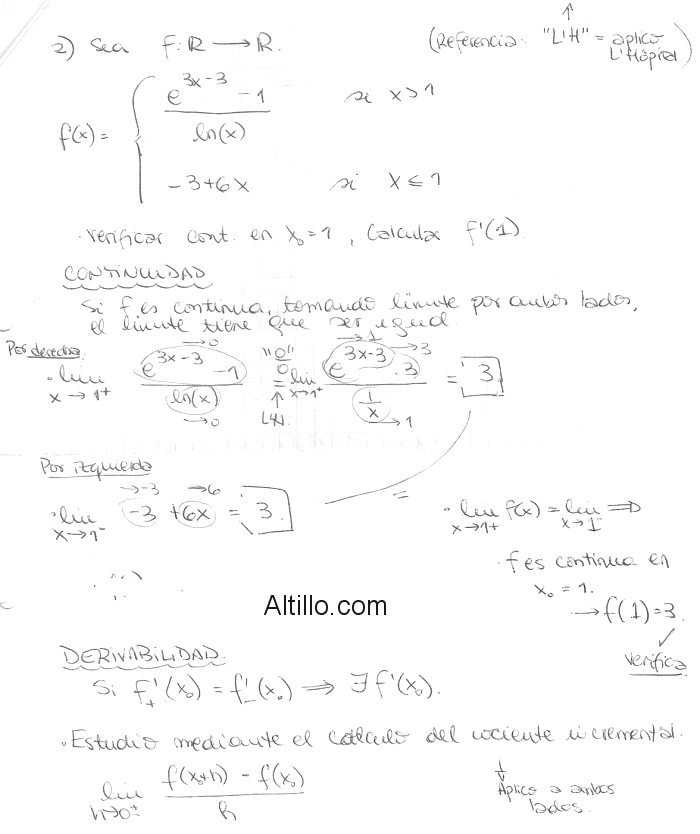 2) Sea f: ℝ → ℝ. (Referencia: "L'H" = aplico L'Hôpital)
f(x) = { (e^(3x-3) - 1) / ln(x) si x > 1
-3+6x si x ≤ 1
· Verificar cont. en x₀=1, Calcular f'(1)
CONTINUIDAD
Si f es continua, tomando límite por ambos lados,
el límite tiene que ser igual.
Por derecha
· lim x→1+ (e^(3x-3) - 1 →0) / (ln(x) →0) "0/0" = ↑ L'H. lim x→1+ (e^(3x-3) →1 · 3 →3) / (1/x →1) = 3
Por izquierda
· lim x→1- -3 →-3 + 6x →6 = 3. =
· lim x→1+ f(x) = lim x→1- ⇒
· f es continua en
x₀ = 1.
→ f(1)=3.
Verifica
Altillo.com
DERIVABILIDAD.
Si f'₊(x₀) = f'₋(x₀) ⇒ ∃ f'(x₀).
· Estudio mediante el cálculo del cociente incremental.
lim h→0± (f(x₀+h) - f(x₀)) / h
↓ Aplico a ambos
lados.